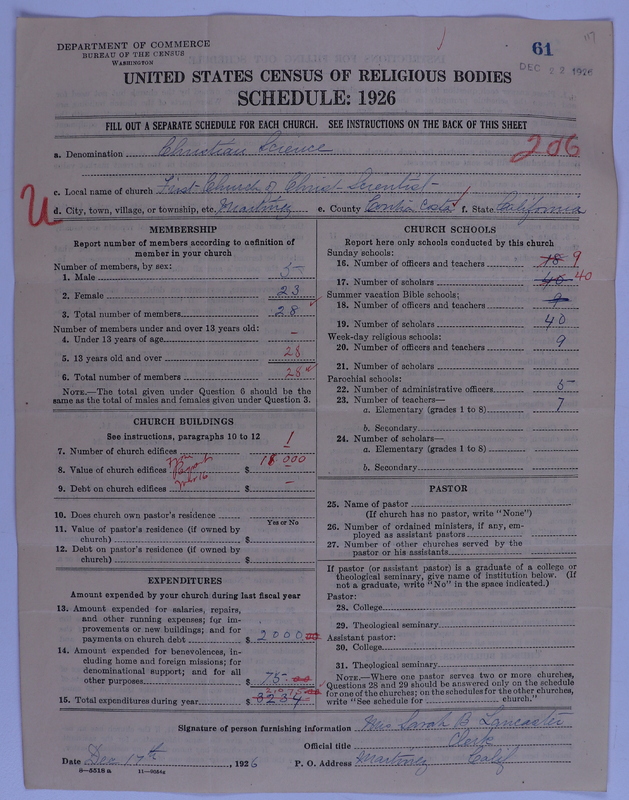 DEPARTMENT OF COMMERCE
BUREAU OF THE CENSUS
WASHINGTON
61
DEC 22 1926
UNITED STATES CENSUS OF RELIGIOUS BODIES
SCHEDULE: 1926
FILL OUT A SEPARATE SCHEDULE FOR EACH CHURCH. SEE INSTRUCTIONS ON THE BACK OF THIS SHEET
a. Denomination Christian Science
206
c. Local name of church First Church of Christ Scientist
U
d. City, town, village, or township, etc. Martinez e. County Contra Costa f. State California
MEMBERSHIP
Report number of members according to definition of
member in your church
Number of members, by sex:
1. Male 5
2. Female 23
3. Total number of members 28
Number of members under and over 13 years old:
4. Under 13 years of age –
5. 13 years old and over 28
6. Total number of members 28
NOTE.—The total given under Question 6 should be the
same as the total of males and females given under Question 3.
CHURCH BUILDINGS
See instructions, paragraphs 10 to 12
7. Number of church edifices 1
8. Value of church edifices $ 18 000
9. Debt on church edifices $ –
10. Does church own pastor's residence
Yes or No
11. Value of pastor's residence (if owned by
church) $
12. Debt on pastor's residence (if owned by
church) $
EXPENDITURES
Amount expended by your church during last fiscal year
13. Amount expended for salaries, repairs,
and other running expenses; for im-
provements or new buildings; and for
payments on church debt $ 2000 00
14. Amount expended for benevolences, in-
cluding home and foreign missions; for
denominational support; and for all
other purposes $ 75 00
2075
15. Total expenditures during year $ 3234
CHURCH SCHOOLS
Report here only schools conducted by this church
Sunday schools:
16. Number of officers and teachers 18 9
17. Number of scholars 40 40
Summer vacation Bible schools:
18. Number of officers and teachers 9
19. Number of scholars 40
Week-day religious schools:
20. Number of officers and teachers 9
21. Number of scholars
Parochial schools:
22. Number of administrative officers 5
23. Number of teachers—
a. Elementary (grades 1 to 8) 7
b. Secondary
24. Number of scholars—
a. Elementary (grades 1 to 8)
b. Secondary
PASTOR
25. Name of pastor
(If church has no pastor, write "None")
26. Number of ordained ministers, if any, em-
ployed as assistant pastors
27. Number of other churches served by the
pastor or his assistants
If pastor (or assistant pastor) is a graduate of a college or
theological seminary, give name of institution below. (If
not a graduate, write "No" in the space indicated.)
Pastor:
28. College
29. Theological seminary
Assistant pastor:
30. College
31. Theological seminary
NOTE.—Where one pastor serves two or more churches,
Questions 28 and 29 should be answered only on the schedule
for one of the churches; on the schedules for the other churches,
write "See schedule for church."
Signature of person furnishing information Mrs Sarah B Lancaster
Official title Clerk
Date Dec 17th, 1926 P. O. Address Martinez Calif
8—5518 a 11—9054a